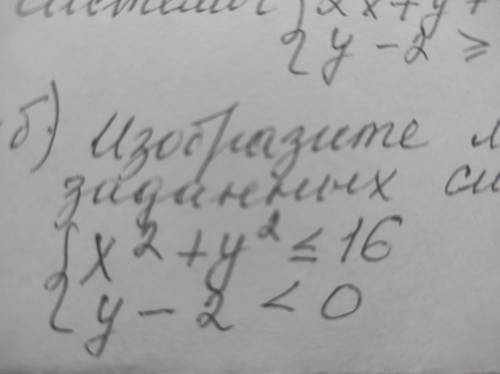 {2x+y+
{y-2 ≥
б) Изобразите
заданных
{x²+y² ≤ 16
{y-2 < 0